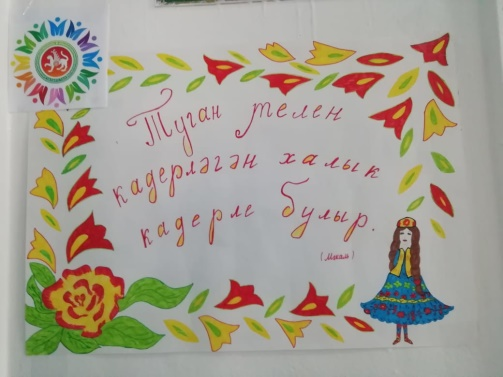 Туган телен
кадерләгән халык
кадерле булыр.
(Мәкаль)